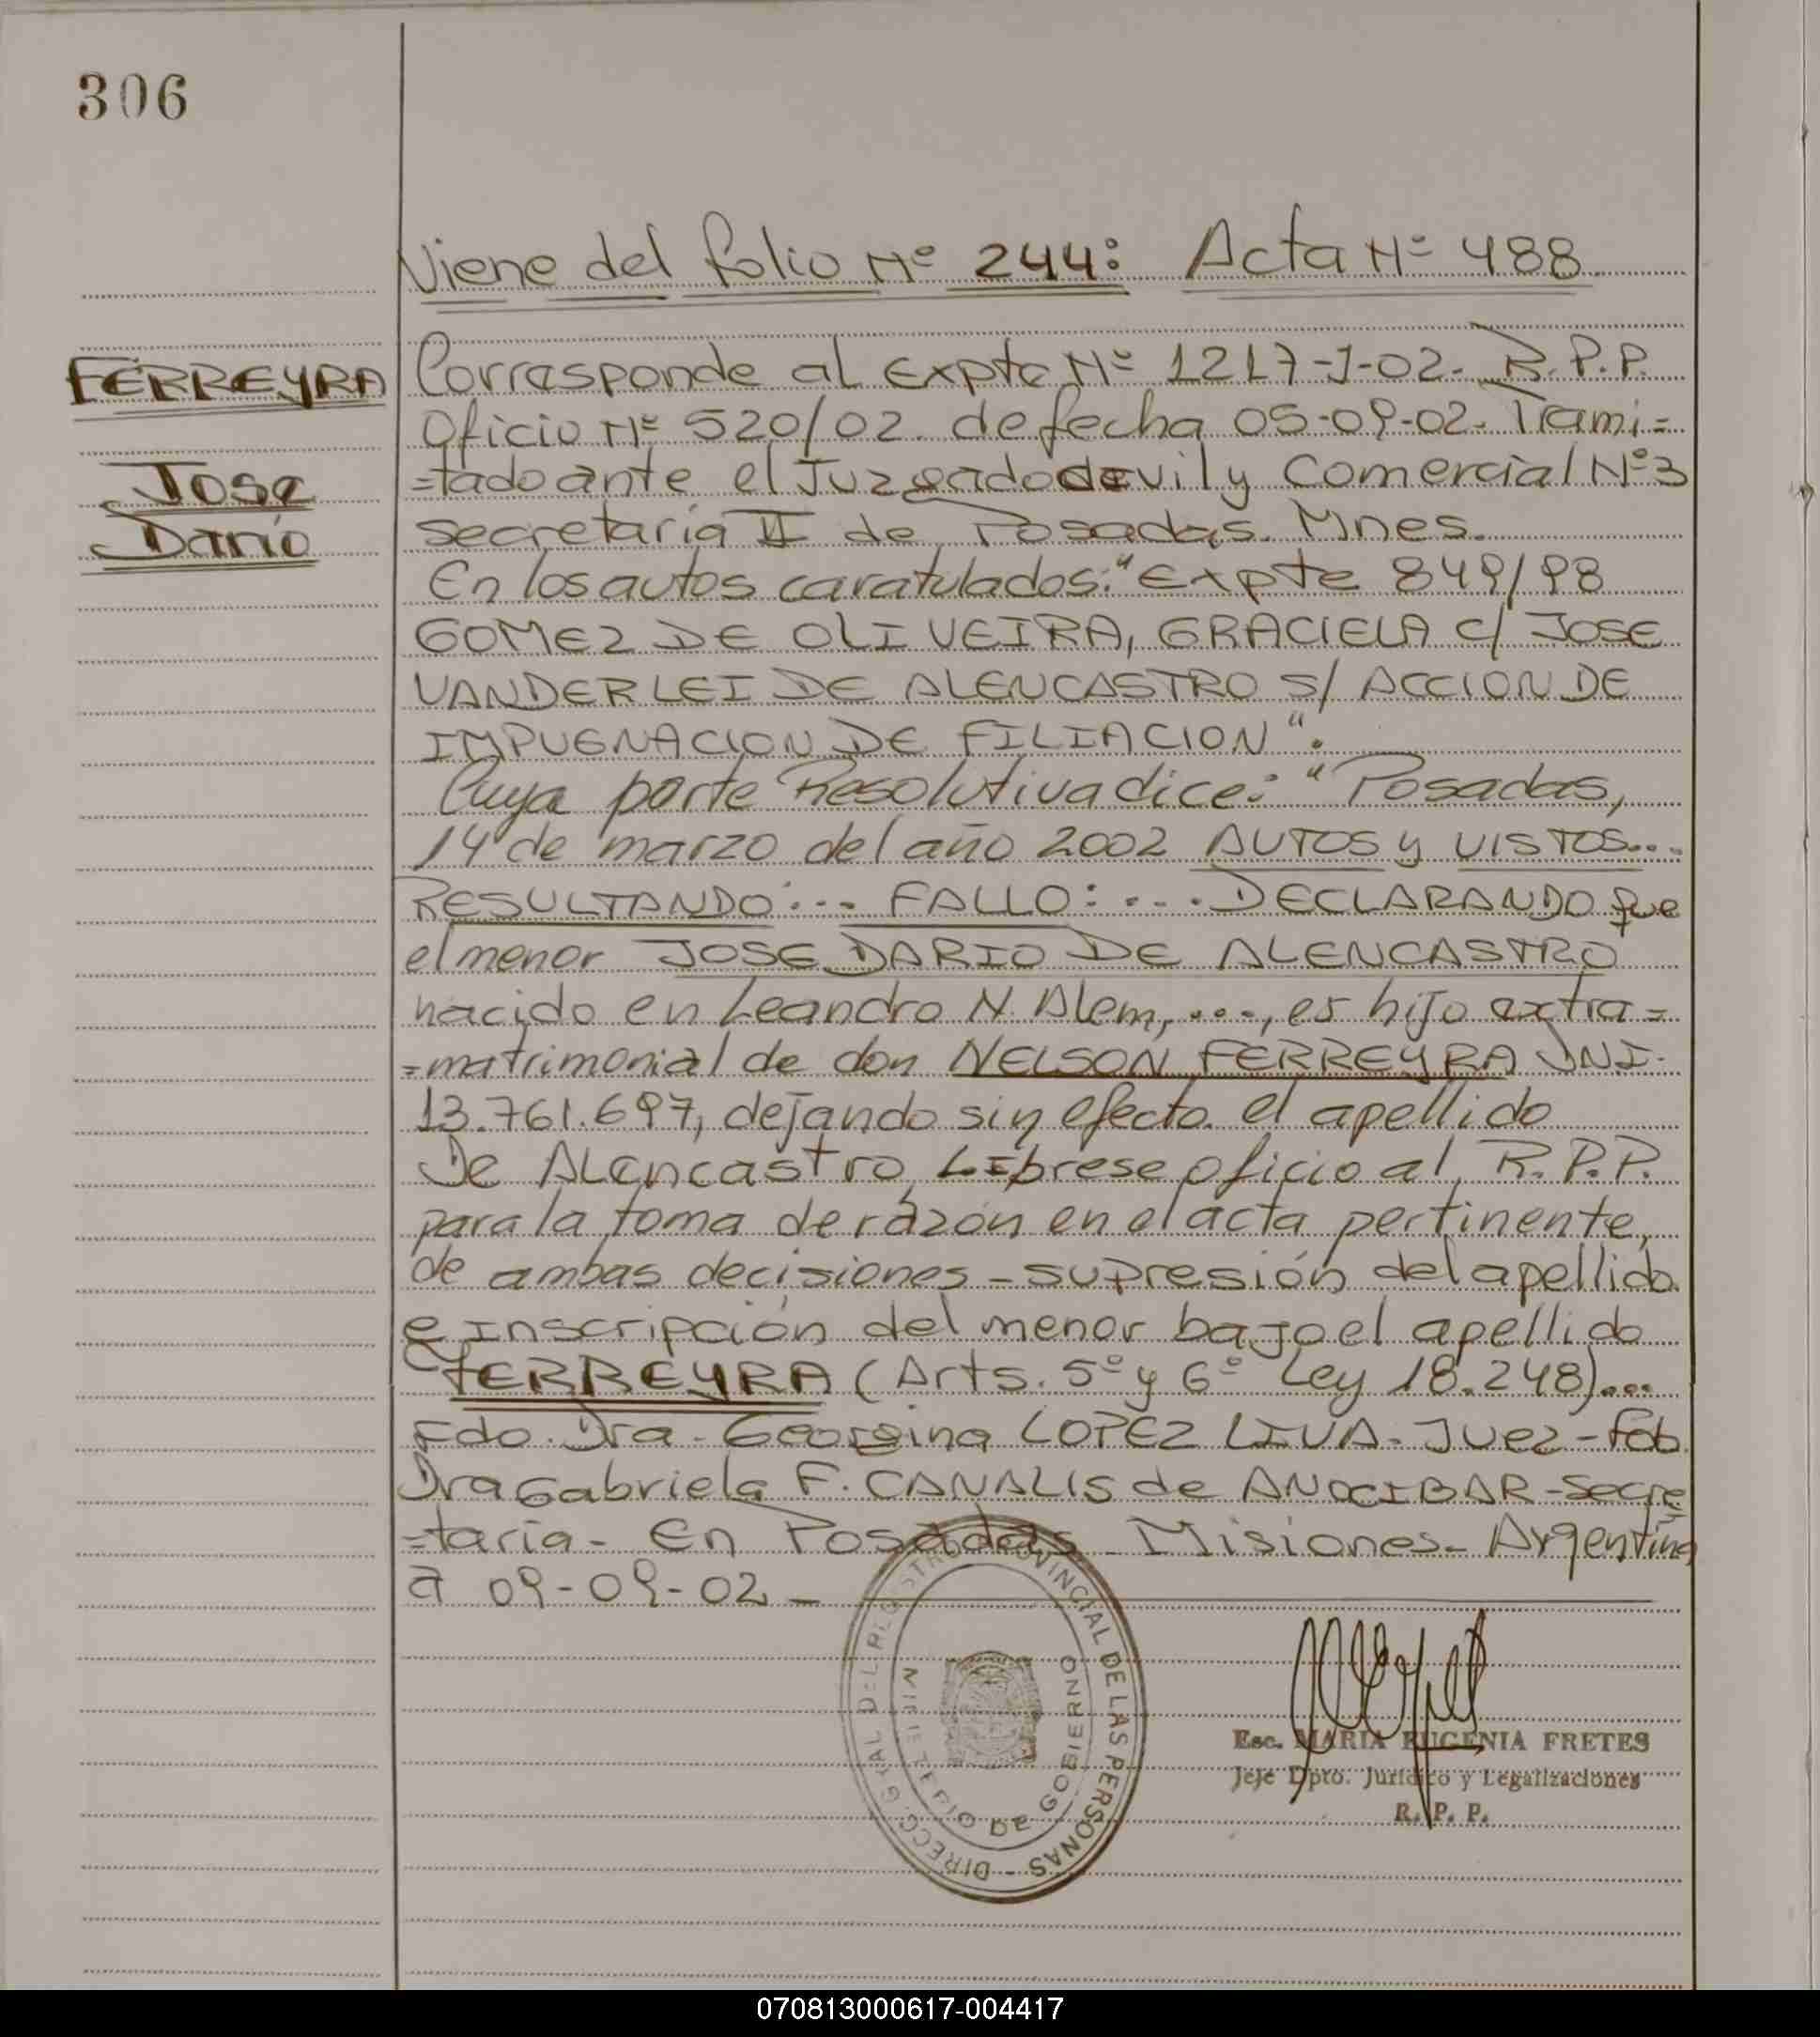 306
Viene del folio Nº 244: Acta Nº 488
FERREYRA
Jose
Darío
Corresponde al Expte Nº 1217-J-02- R.P.P.
Oficio Nº 520/02 de fecha 05-09-02- Trami=
=tado ante el Juzgado civil y Comercial Nº3
secretaria II de Posadas. Mnes.
En los autos caratulados: "Expte 849/98
GOMEZ DE OLIVEIRA, GRACIELA c/ JOSE
VANDERLEI DE ALENCASTRO s/ ACCION DE
IMPUGNACION DE FILIACION".
Cuya parte Resolutiva dice: "Posadas,
14 de marzo del año 2002 AUTOS y VISTOS...
RESULTANDO:... FALLO:.... DECLARANDO que
el menor JOSE DARIO DE ALENCASTRO
nacido en Leandro N. Alem,...., es hijo extra=
=matrimonial de don NELSON FERREYRA DNI.
13.761.697, dejando sin efecto el apellido
De Alencastro, Librese oficio al R.P.P.
para la toma de razón en el acta pertinente,
de ambas decisiones - supresión del apellido
e inscripción del menor bajo el apellido
FERREYRA (Arts. 5º y 6º Ley 18.248)...
Fdo. Dra. Georgina LOPEZ LIVA- Juez-
Dra Gabriela F. CANALIS de ANOCIBAR-Secre
=taria- En Posadas- Misiones- Argentina
a 09-09-02-
DIRECC. GRAL DEL REGISTRO PROVINCIAL DE LAS PERSONAS -
MINISTERIO DE GOBIERNO
Esc. MARIA EUGENIA FRETES
Jefe Dpto. Jurídico y Legalizaciones
R. P. P.
070813000617-004417